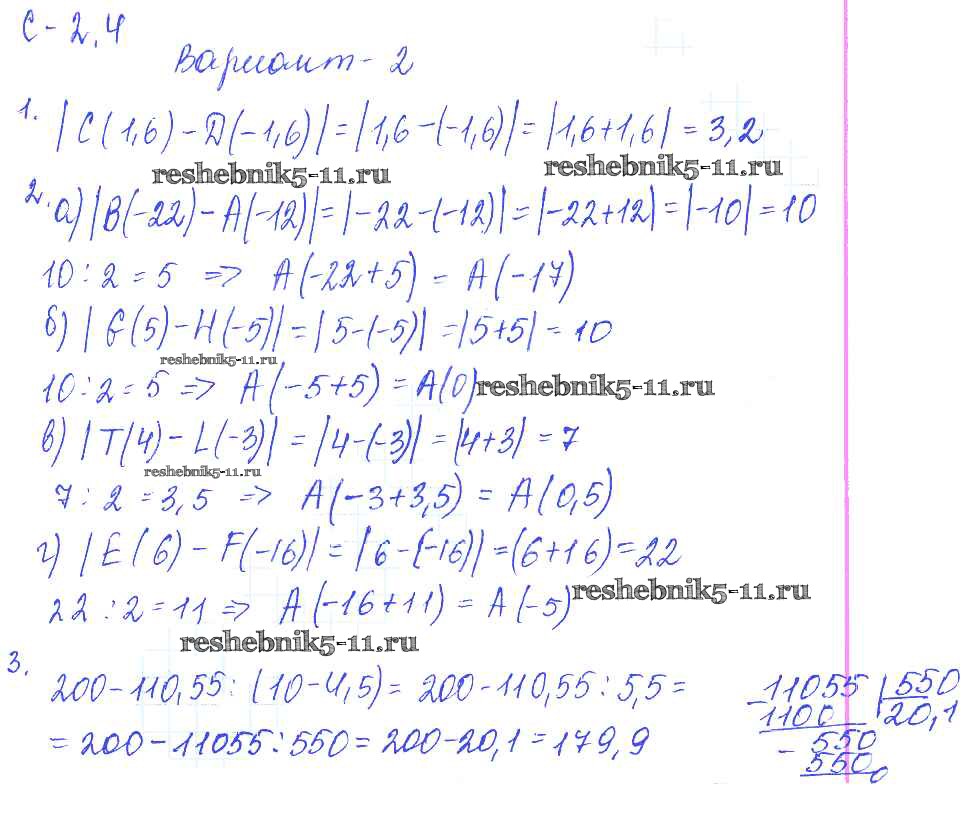 С - 2,4
Вариант - 2
1. |C(1,6) - D(-1,6)| = |1,6 - (-1,6)| = |1,6+1,6| = 3,2
reshebnik5-11.ru reshebnik5-11.ru
2. а) |B(-22) - A(-12)| = |-22 - (-12)| = |-22+12| = |-10| = 10
10 : 2 = 5 => A(-22+5) = A(-17)
б) |G(5) - H(-5)| = |5-(-5)| = |5+5| = 10
reshebnik5-11.ru
10 : 2 = 5 => A(-5+5) = A(0) reshebnik5-11.ru
в) |T(4) - L(-3)| = |4-(-3)| = |4+3| = 7
reshebnik5-11.ru
7 : 2 = 3,5 => A(-3+3,5) = A(0,5)
г) |E(6) - F(-16)| = |6-(-16)| = (6+16) = 22
22 : 2 = 11 => A(-16+11) = A(-5) reshebnik5-11.ru
reshebnik5-11.ru
3. 200 - 110,55 : (10 - 4,5) = 200 - 110,55 : 5,5 =
= 200 - 11055 : 550 = 200 - 20,1 = 179,9
- 11055 | 550
1100 | 20,1
- 550
550
0